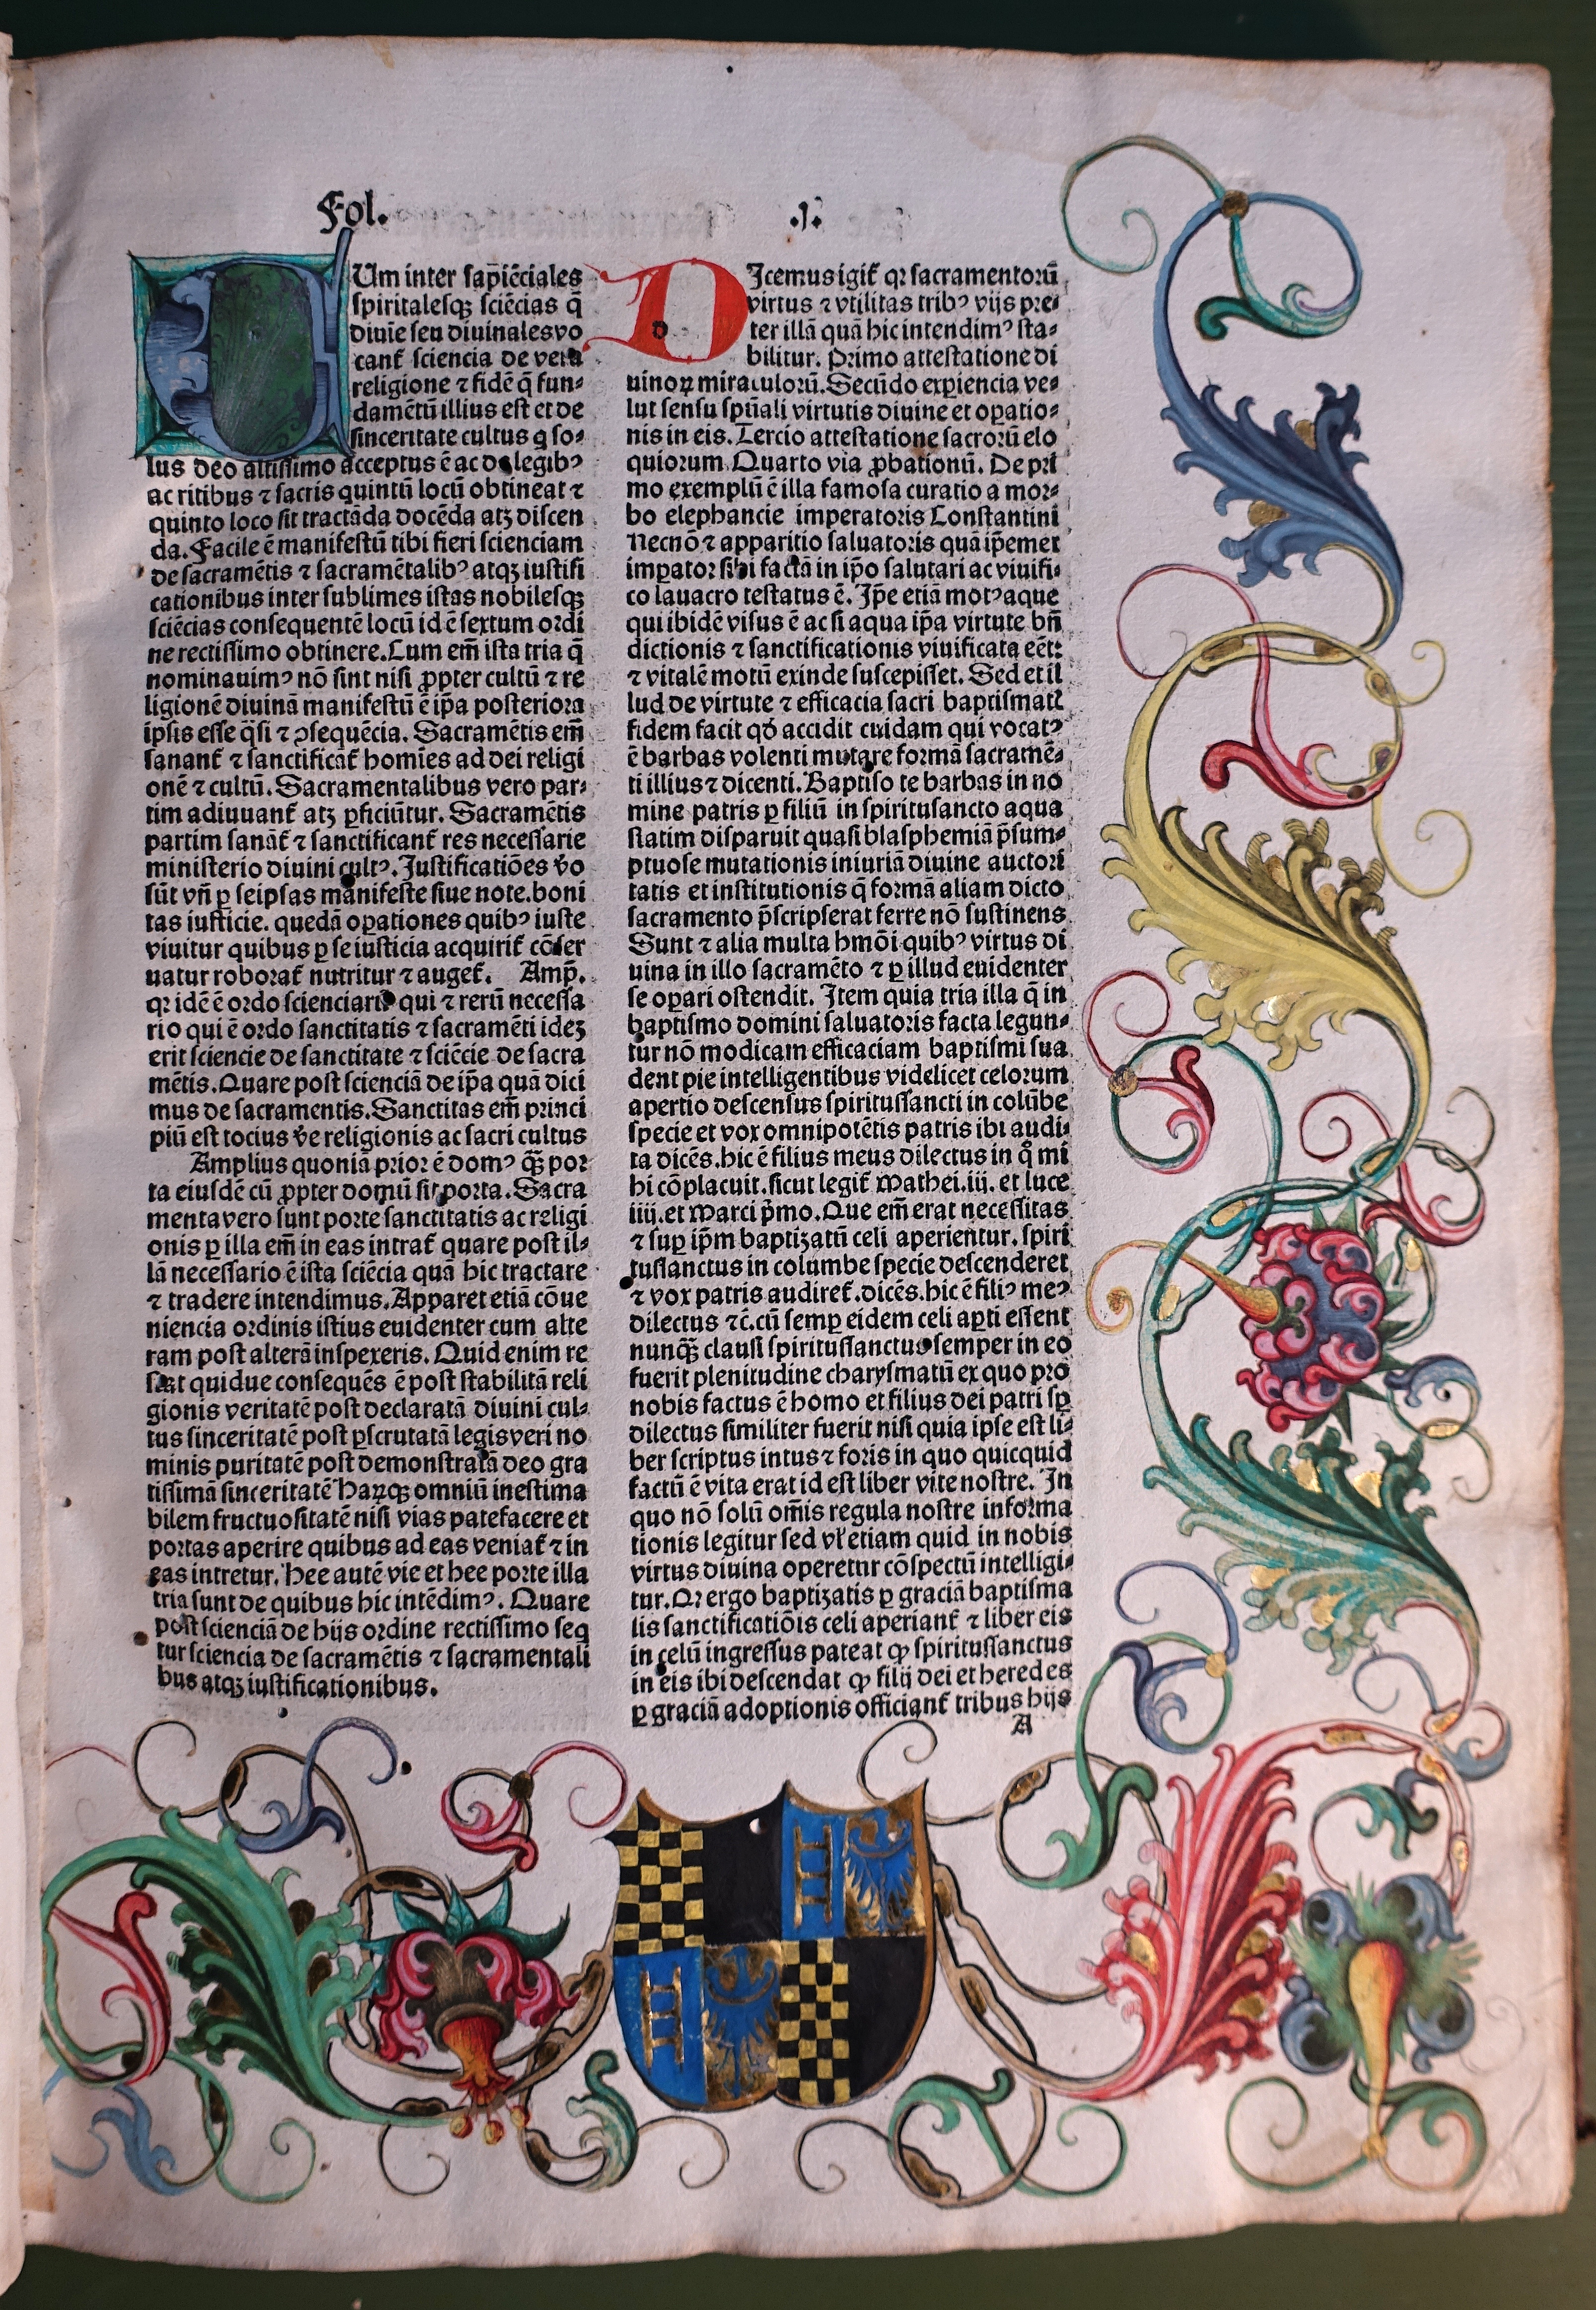 Fol. .I.
CUm inter sap̄iēciales
spiritalesq; sciēcias q̄
diuīe seu diuinales vo
cant̄ sciencia de vera
religione ⁊ fidē q̄ fun⸗
damētū illius est et de
sinceritate cultus q̄ so⸗
lus deo altissimo acceptus ē ac de legibꝰ
ac ritibus ⁊ sacris quintū locū obtineat ⁊
quinto loco sit tractāda docēda atꝫ discen
da. Facile ē manifestū tibi fieri scienciam
de sacramētis ⁊ sacramētalibꝰ atqꝫ iustifi
cationibus inter sublimes istas nobilesqꝫ
sciēcias consequentē locū id ē sextum ordi
ne rectissimo obtinere. Cum em̄ ista tria q̄
nominauimꝰ nō sint nisi ꝓpter cultū ⁊ re
ligionē diuinā manifestū ē ip̄a posteriora
ipsis esse q̄si ⁊ ꝯsequēcia. Sacramētis em̄
sanant̄ ⁊ sanctificat̄ homīes ad dei religi
onē ⁊ cultū. Sacramentalibus vero par⸗
tim adiuuant̄ atꝫ ꝑficiūtur. Sacramētis
partim sanāt̄ ⁊ sanctificant̄ res necessarie
ministerio diuini cultꝰ. Justificatiōes v̄o
sūt vn̄ ꝑ seipsas manifeste siue note. boni
tas iusticie. quedā oꝑationes quibꝰ iuste
viuitur quibus ꝑ se iusticia acquirit̄ cōser
uatur roborat̄ nutritur ⁊ auget̄. Amp̄.
qꝛ idē ē ordo scienciarū qui ⁊ rerū necessa
rio qui ē ordo sanctitatis ⁊ sacramēti ideꝫ
erit sciencie de sanctitate ⁊ sciēcie de sacra
mētis. Quare post scienciā de ip̄a quā dici
mus de sacramentis. Sanctitas em̄ princi
piū est tocius v̄e religionis ac sacri cultus
Amplius quoniā prior ē domꝰ qꝫ̄ por
ta eiusdē cū ꝓpter domū sit porta. Sacra
menta vero sunt porte sanctitatis ac religi
onis ꝑ illa em̄ in eas intrat̄ quare post il⸗
lā necessario ē ista sciēcia quā hic tractare
⁊ tradere intendimus. Apparet etiā cōue
niencia ordinis istius euidenter cum alte
ram post alterā inspexeris. Quid enim re
stat quidue consequēs ē post stabilitā reli
gionis veritatē post declaratā diuini cul⸗
tus sinceritatē post ꝑscrutatā legis veri no
minis puritatē post demonstratā deo gra
tissimā sinceritatē haꝝqꝫ omniū inestima
bilem fructuositatē nisi vias patefacere et
portas aperire quibus ad eas veniat̄ ⁊ in
eas intretur. Hee autē vie et hee porte illa
tria sunt de quibus hic intēdimꝰ. Quare
post scienciā de hijs ordine rectissimo seq̄
tur sciencia de sacramētis ⁊ sacramentali
bus atqꝫ iustificationibus.
DJcemus igit̄ qꝛ sacramentorū
virtus ⁊ vtilitas tribꝰ vijs pre⸗
ter illā quā hic intendimꝰ sta⸗
bilitur. Primo attestatione di
uinoꝝ miraculorū. Secūdo exꝑiencia ve⸗
lut sensu spūali virtutis diuine et oꝑatio⸗
nis in eis. Tercio attestatione sacrorū elo
quiorum. Quarto via ꝓbationū. De pri
mo exemplū ē illa famosa curatio a mor⸗
bo elephancie imperatoris Constantini
Necnō ⁊ apparitio saluatoris quā ip̄emet
imꝑator sibi factā in ip̄o salutari ac viuifi⸗
co lauacro testatus ē. Jp̄e etiā motꝰ aque
qui ibidē visus ē ac si aqua ip̄a virtute bn̄
dictionis ⁊ sanctificationis viuificata eēt:
⁊ vitalē motū exinde suscepisset. Sed et il
lud de virtute ⁊ efficacia sacri baptismat̄
fidem facit qđ accidit cuidam qui vocatꝰ
ē barbas volenti mutare formā sacramē⸗
ti illius ⁊ dicenti. Baptiso te barbas in no
mine patris ꝑ filiū in spiritusancto aqua
statim disparuit quasi blasphemiā p̄sum⸗
ptuose mutationis iniuriā diuine auctori
tatis et institutionis q̄ formā aliam dicto
sacramento p̄scripserat ferre nō sustinens
Sunt ⁊ alia multa hmōi quibꝰ virtus di
uina in illo sacramēto ⁊ ꝑ illud euidenter
se oꝑari ostendit. Item quia tria illa q̄ in
baptismo domini saluatoris facta legun⸗
tur nō modicam efficaciam baptismi sua
dent pie intelligentibus videlicet celorum
apertio descensus spiritussancti in colūbe
specie et vox omnipotētis patris ibi audi⸗
ta dicēs. hic ē filius meus dilectus in qͦ mi
hi cōplacuit. sicut legit̄ Mathei. iij. et luce
iiij. et Marci p̄mo. Que em̄ erat necessitas
⁊ suꝑ ip̄m baptizatū celi aperientur. spiri
tussanctus in columbe specie descenderet
⁊ vox patris audiret̄. dicēs. hic ē filiꝰ meꝰ
dilectus ⁊c̄. cū semꝑ eidem celi aꝑti essent
nunqꝫ̄ clausi spiritussanctus semper in eo
fuerit plenitudine charysmatū ex quo pro
nobis factus ē homo et filius dei patri sꝑ
dilectus similiter fuerit nisi quia ipse est li⸗
ber scriptus intus ⁊ foris in quo quicquid
factū ē vita erat id est liber vite nostre. In
quo nō solū om̄is regula nostre informa
tionis legitur sed vl̄ etiam quid in nobis
virtus diuina operetur cōspectū intelligi⸗
tur. Qꝛ ergo baptizatis ꝑ graciā baptisma
lis sanctificatiōis celi aperiant̄ ⁊ liber eis
in celū ingressus pateat ꝙ spiritussanctus
in eis ibi descendat ꝙ filij dei et heredes
ꝑ graciā adoptionis officiant̄ tribus hijs
A